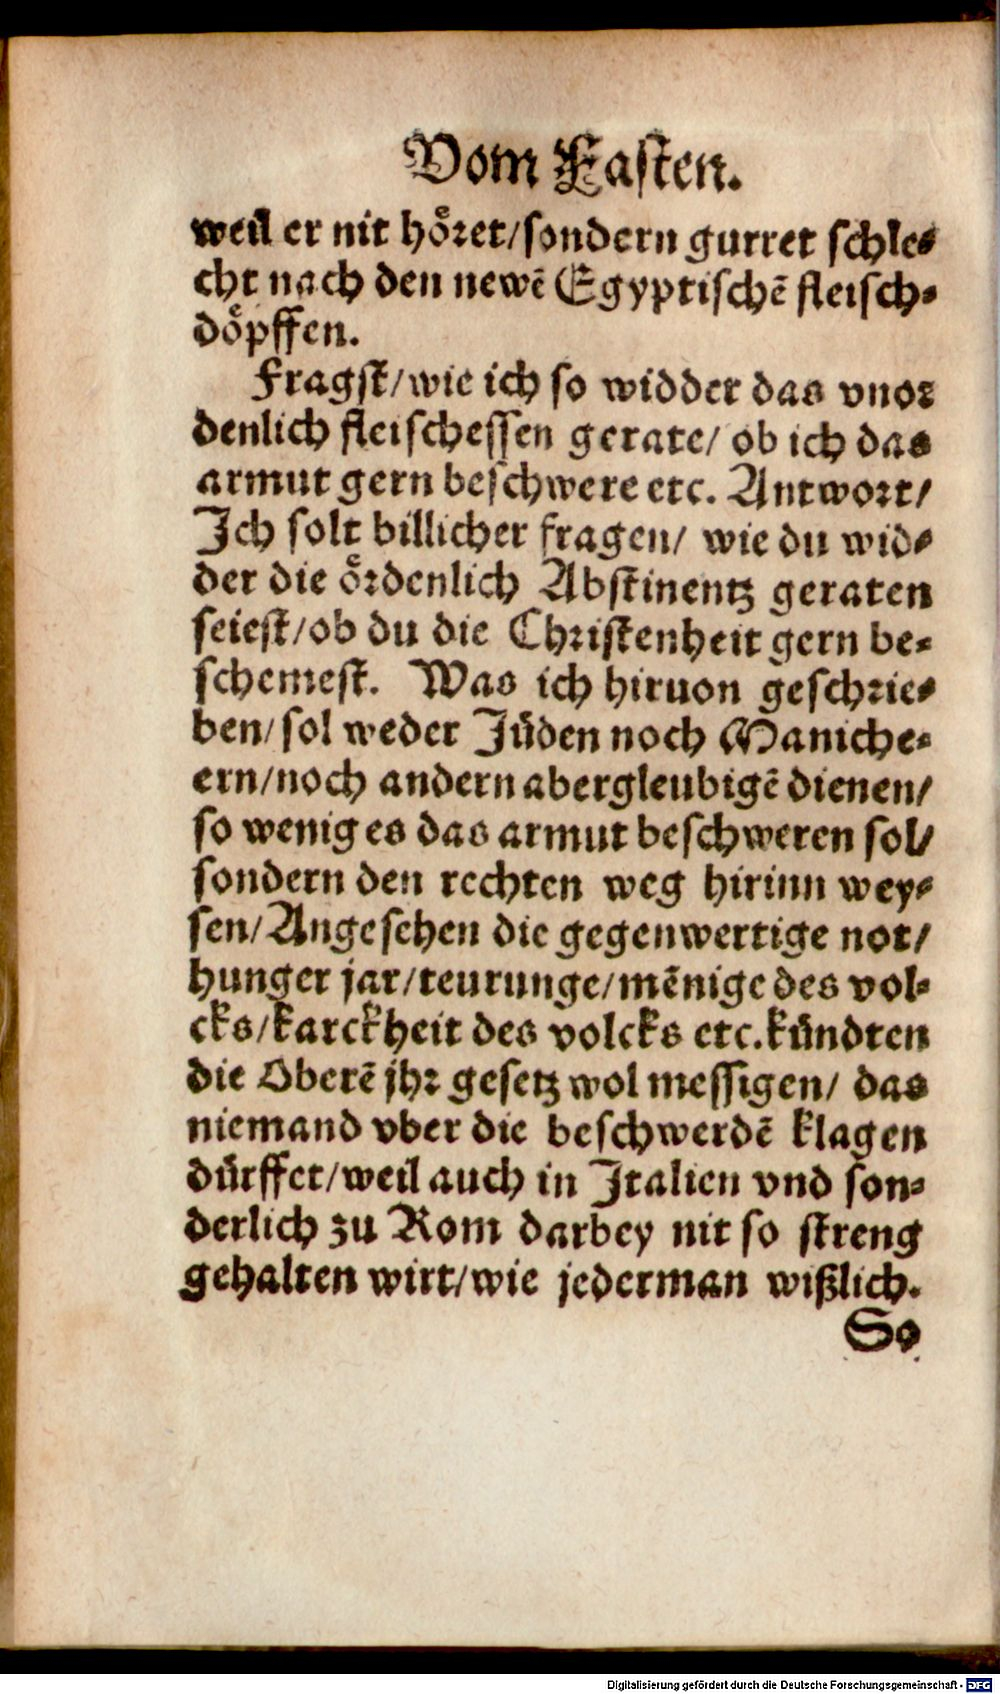 Vom Fasten.
weil er nit hoͤret/sondern gurret schle⸗
cht nach den newẽ Egyptischẽ fleisch⸗
doͤpffen.
Fragst/wie ich so widder das vnor
denlich fleischessen gerate/ ob ich das
armut gern beschwere etc. Antwort/
Ich solt billicher fragen/ wie du wid⸗
der die oͤrdenlich Abstinentz geraten
seiest/ob du die Christenheit gern be⸗
schemest. Was ich hiruon geschrie⸗
ben/sol weder Jüden noch Maniche⸗
ern/noch andern abergleubigẽ dienen/
so wenig es das armut beschweren sol/
sondern den rechten weg hirinn wey⸗
sen/Angesehen die gegenwertige not/
hunger jar/teurunge/mẽnige des vol⸗
cks/karckheit des volcks etc. kündten
die Oberẽ jhr gesetz wol messigen/ das
niemand vber die beschwerdẽ klagen
dürffet/weil auch in Italien vnd son⸗
derlich zu Rom darbey nit so streng
gehalten wirt/wie jederman wißlich.
So
Digitalisierung gefördert durch die Deutsche Forschungsgemeinschaft - DFG